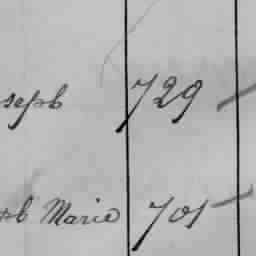 seph 729
ph Marie 705